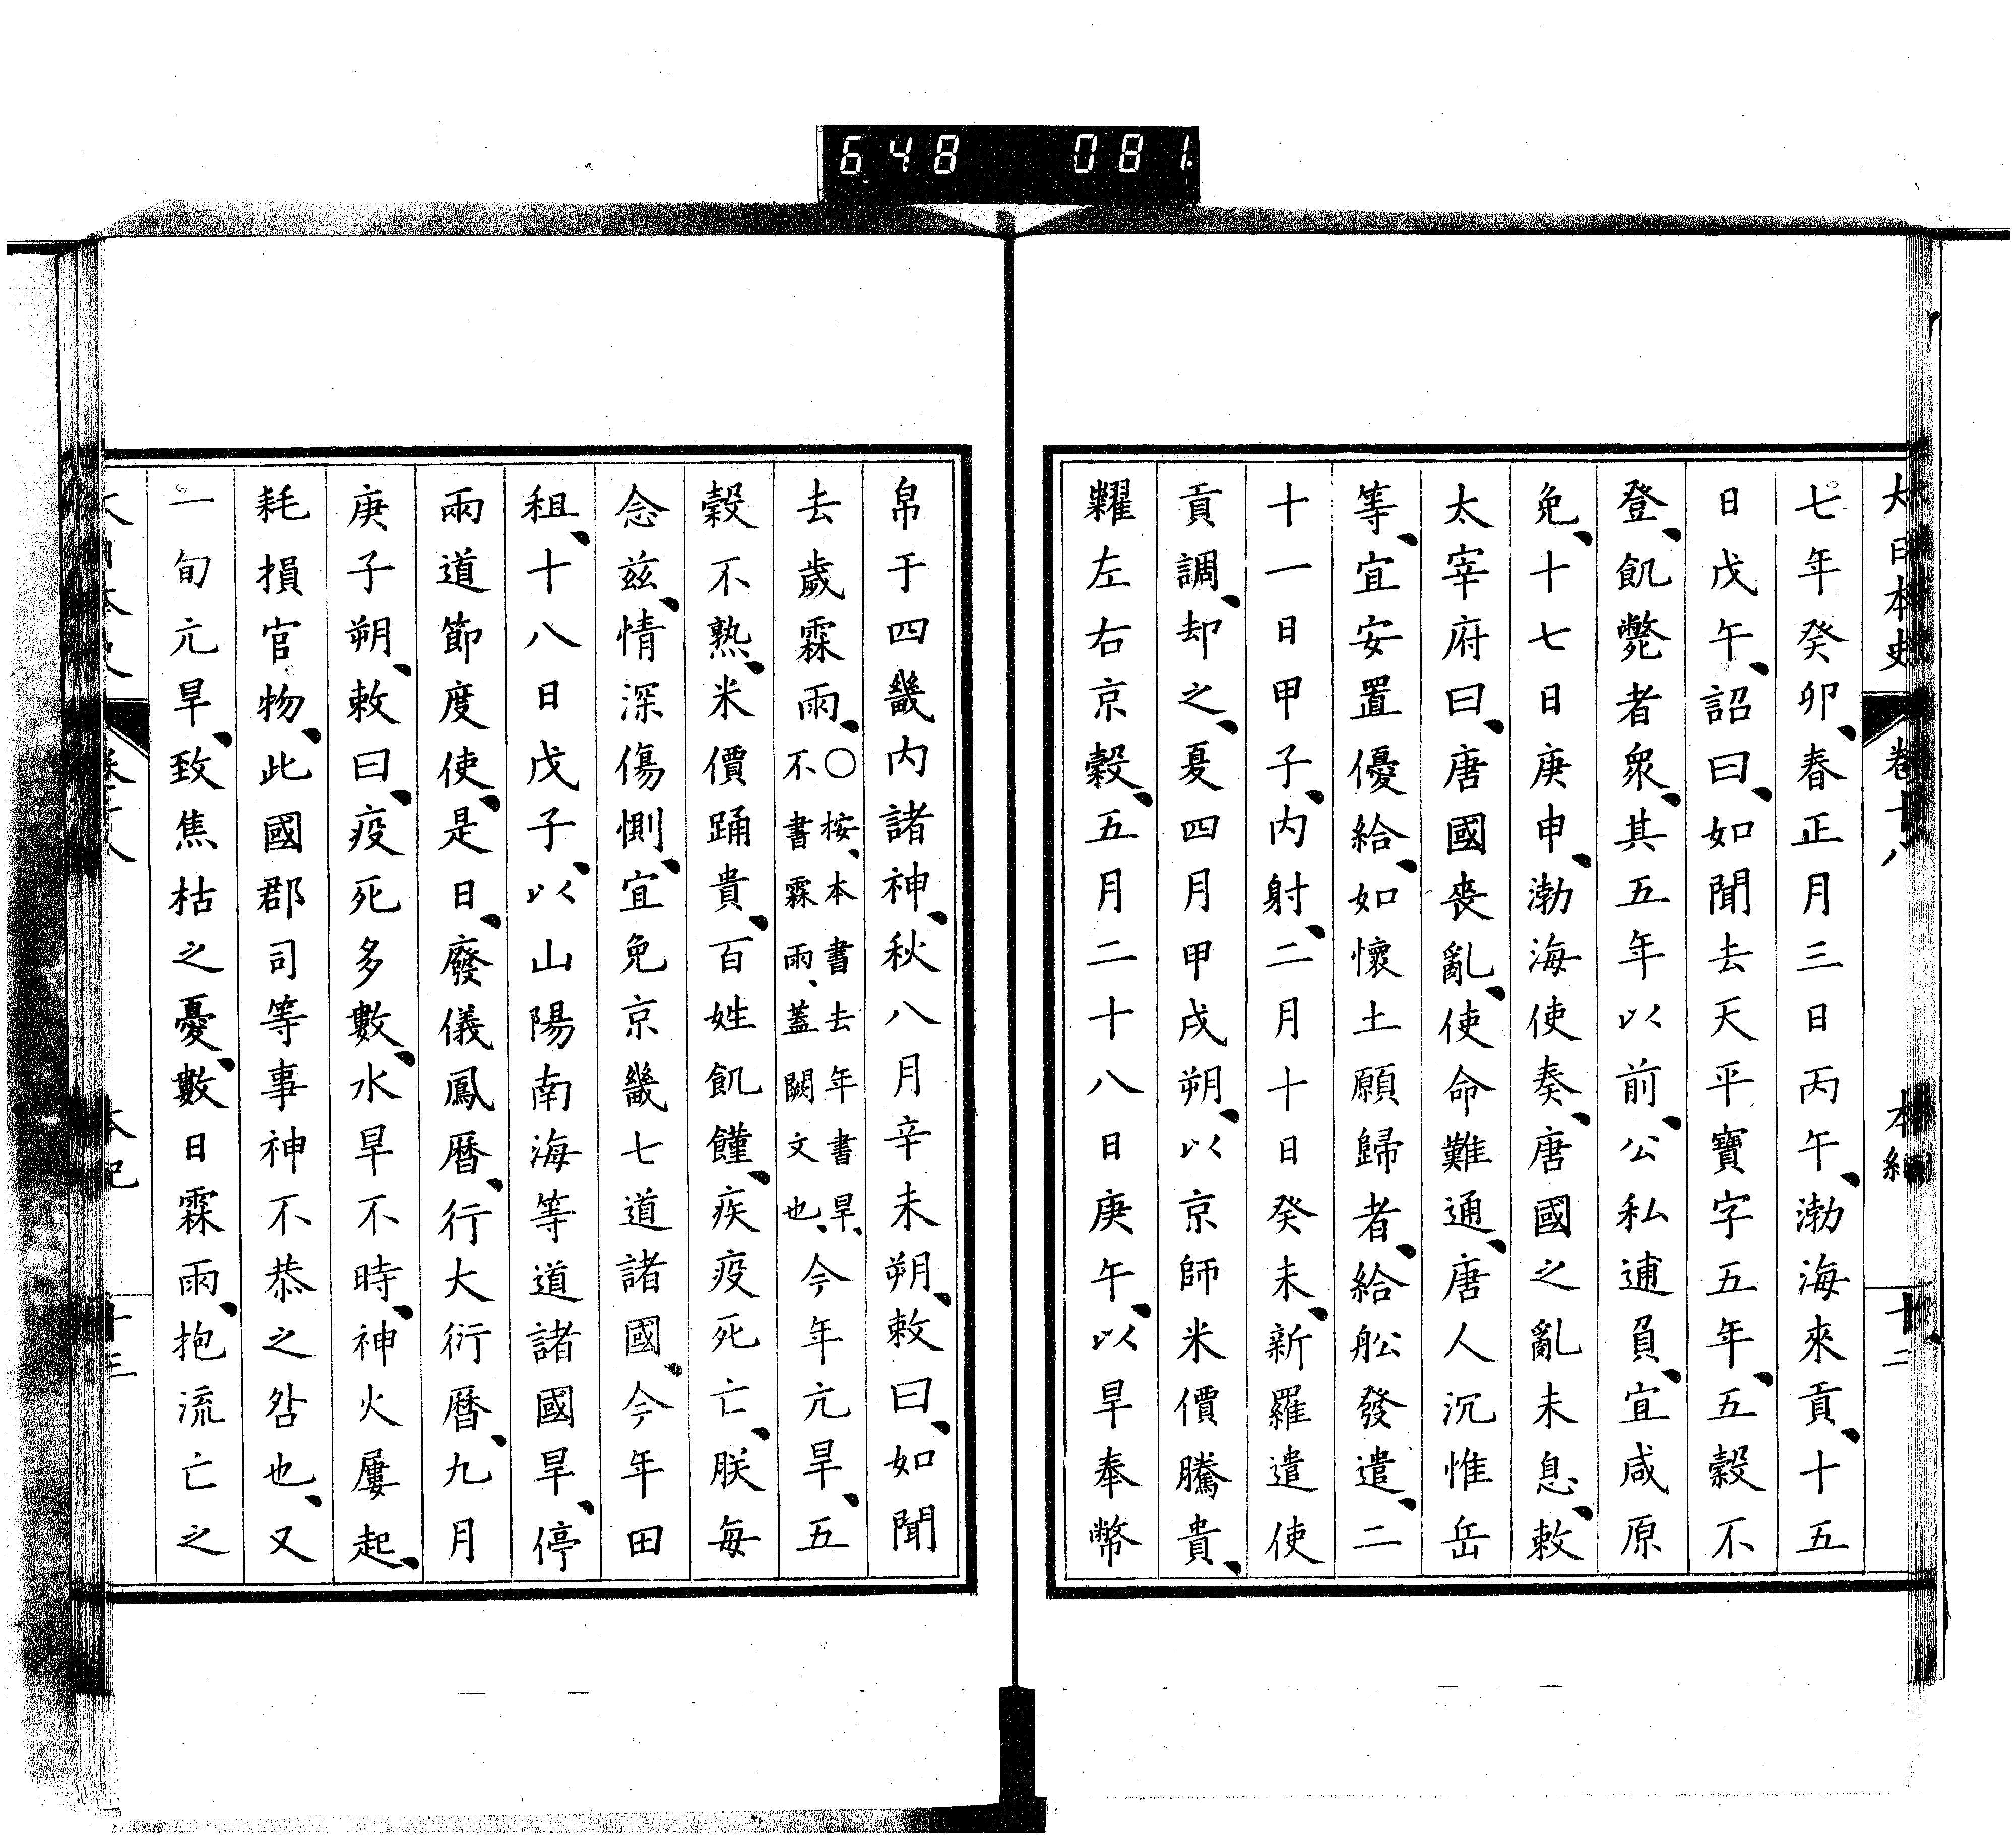 648 081
大日本史 卷十八 本紀 十二
七年癸卯、春正月三日丙午、渤海來貢、十五
日戊午、詔曰、如聞去天平寶字五年、五穀不
登、飢斃者衆、其五年以前、公私逋負、宜咸原
免、十七日庚申、渤海使奏、唐國之亂未息、敕
太宰府曰、唐國喪亂、使命難通、唐人沉惟岳
等、宜安置優給、如懷土願歸者、給舩發遣、二
十一日甲子、內射、二月十日癸未、新羅遣使
貢調、却之、夏四月甲戌朔、以京師米價騰貴、
糶左右京穀、五月二十八日庚午、以旱奉幣
帛于四畿內諸神、秋八月辛未朔、敕曰、如聞
去歲霖雨、〇按、本書去年書旱、不書霖雨、蓋闕文也、今年亢旱、五
穀不熟、米價踊貴、百姓飢饉、疾疫死亡、朕每
念茲、情深傷惻、宜免京畿七道諸國、今年田
租、十八日戊子、以山陽南海等道諸國旱、停
兩道節度使、是日、廢儀鳳曆、行大衍曆、九月
庚子朔、敕曰、疫死多數、水旱不時、神火屢起、
耗損官物、此國郡司等事神不恭之咎也、又
一旬亢旱、致焦枯之憂、數日霖雨、抱流亡之